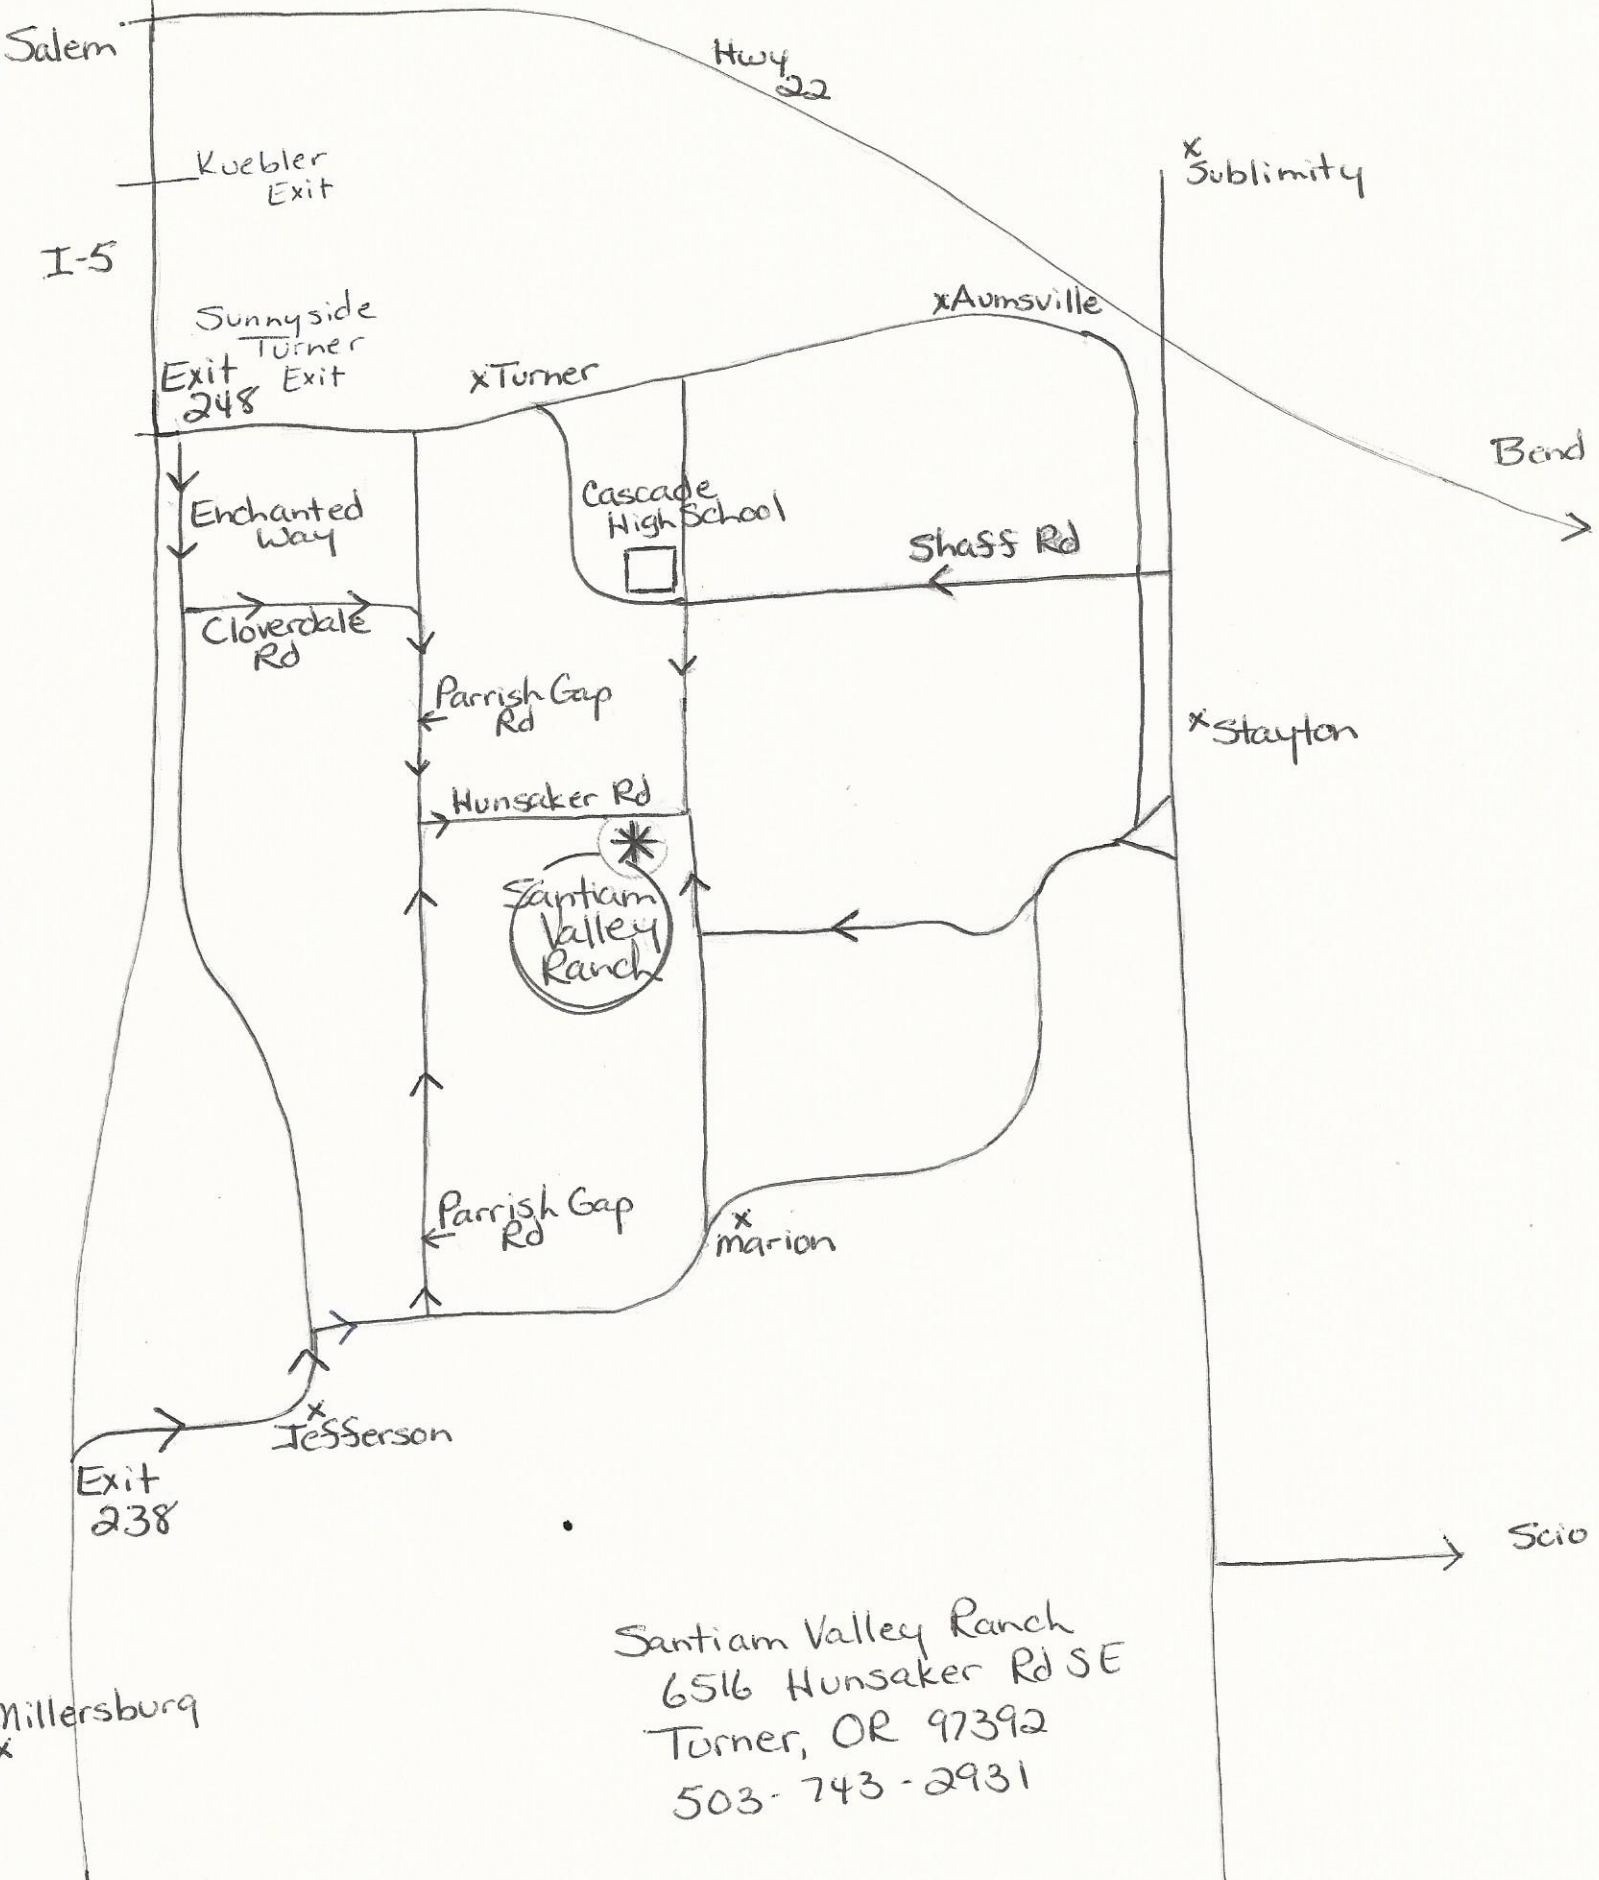 Salem
Hwy
22
Kuebler
Exit
x
Sublimity
I-5
Sunnyside
Turner
Exit
Exit
248
xTurner
xAumsville
Bend
Enchanted
Way
Cascade
High School
Shaff Rd
Cloverdale
Rd
Parrish Gap
Rd
x Stayton
Hunsaker Rd
Santiam
Valley
Ranch
Parrish Gap
Rd
x
Marion
x
Jefferson
Exit
238
Scio
Santiam Valley Ranch
6516 Hunsaker Rd SE
Turner, OR 97392
503-743-2931
Millersburg
x